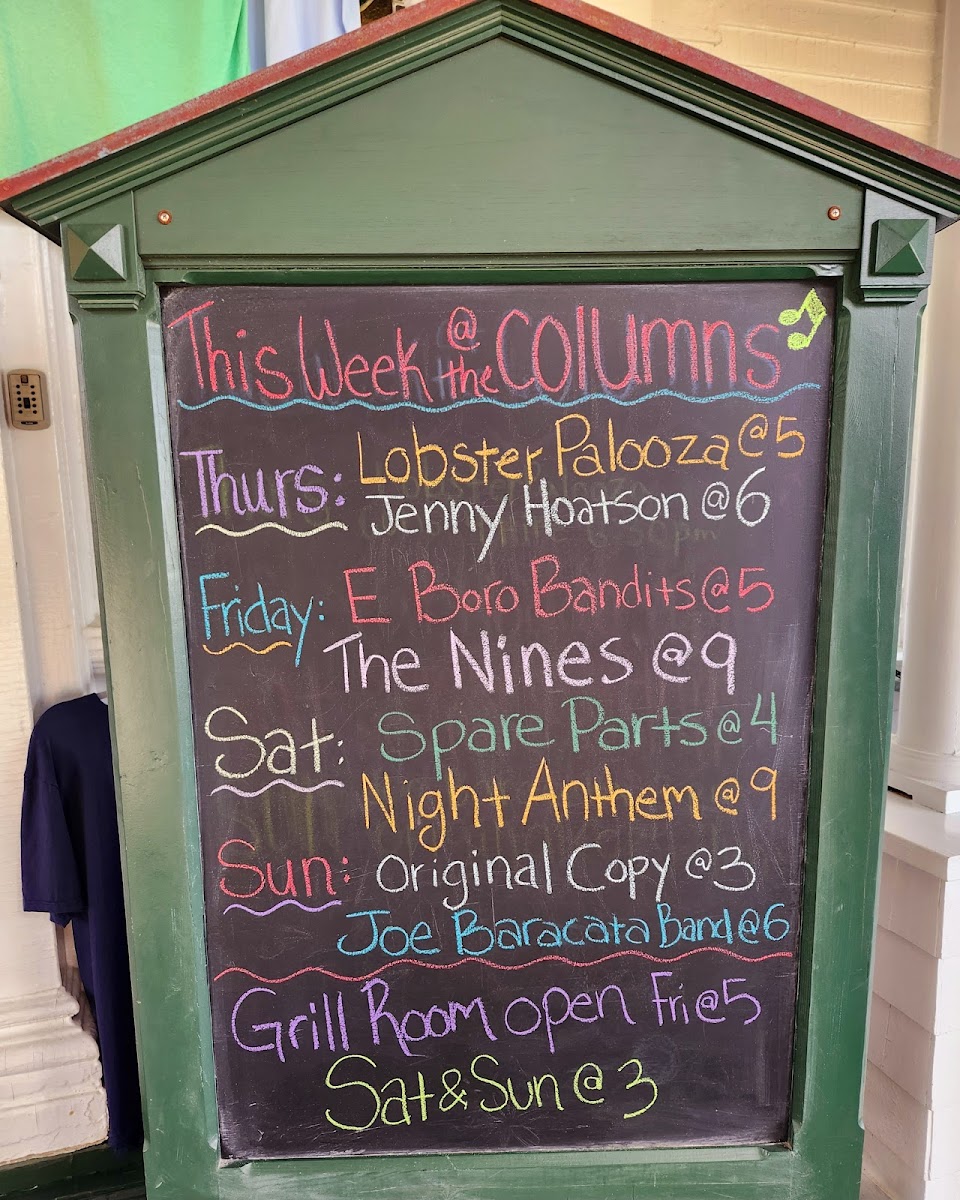 This Week @ the COlUmns
Thurs: Lobster Palooza @ 5
Jenny Hoatson @ 6
Friday: E Boro Bandits @ 5
The Nines @ 9
Sat: Spare Parts @ 4
Night Anthem @ 9
Sun: Original Copy @ 3
Joe Baracata Band @ 6
Grill Room open Fri @ 5
Sat & Sun @ 3